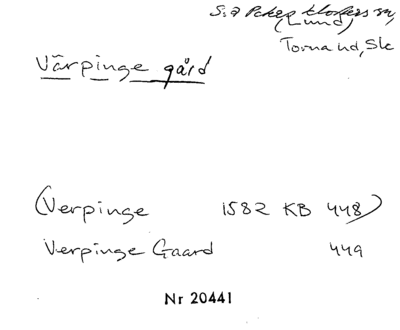 S:t Peters klosters sn,
(Lund)
Torna hd, Sk
Värpinge gård
(Verpinge 1582 KB 448)
Verpinge Gaard 449
Nr 20441